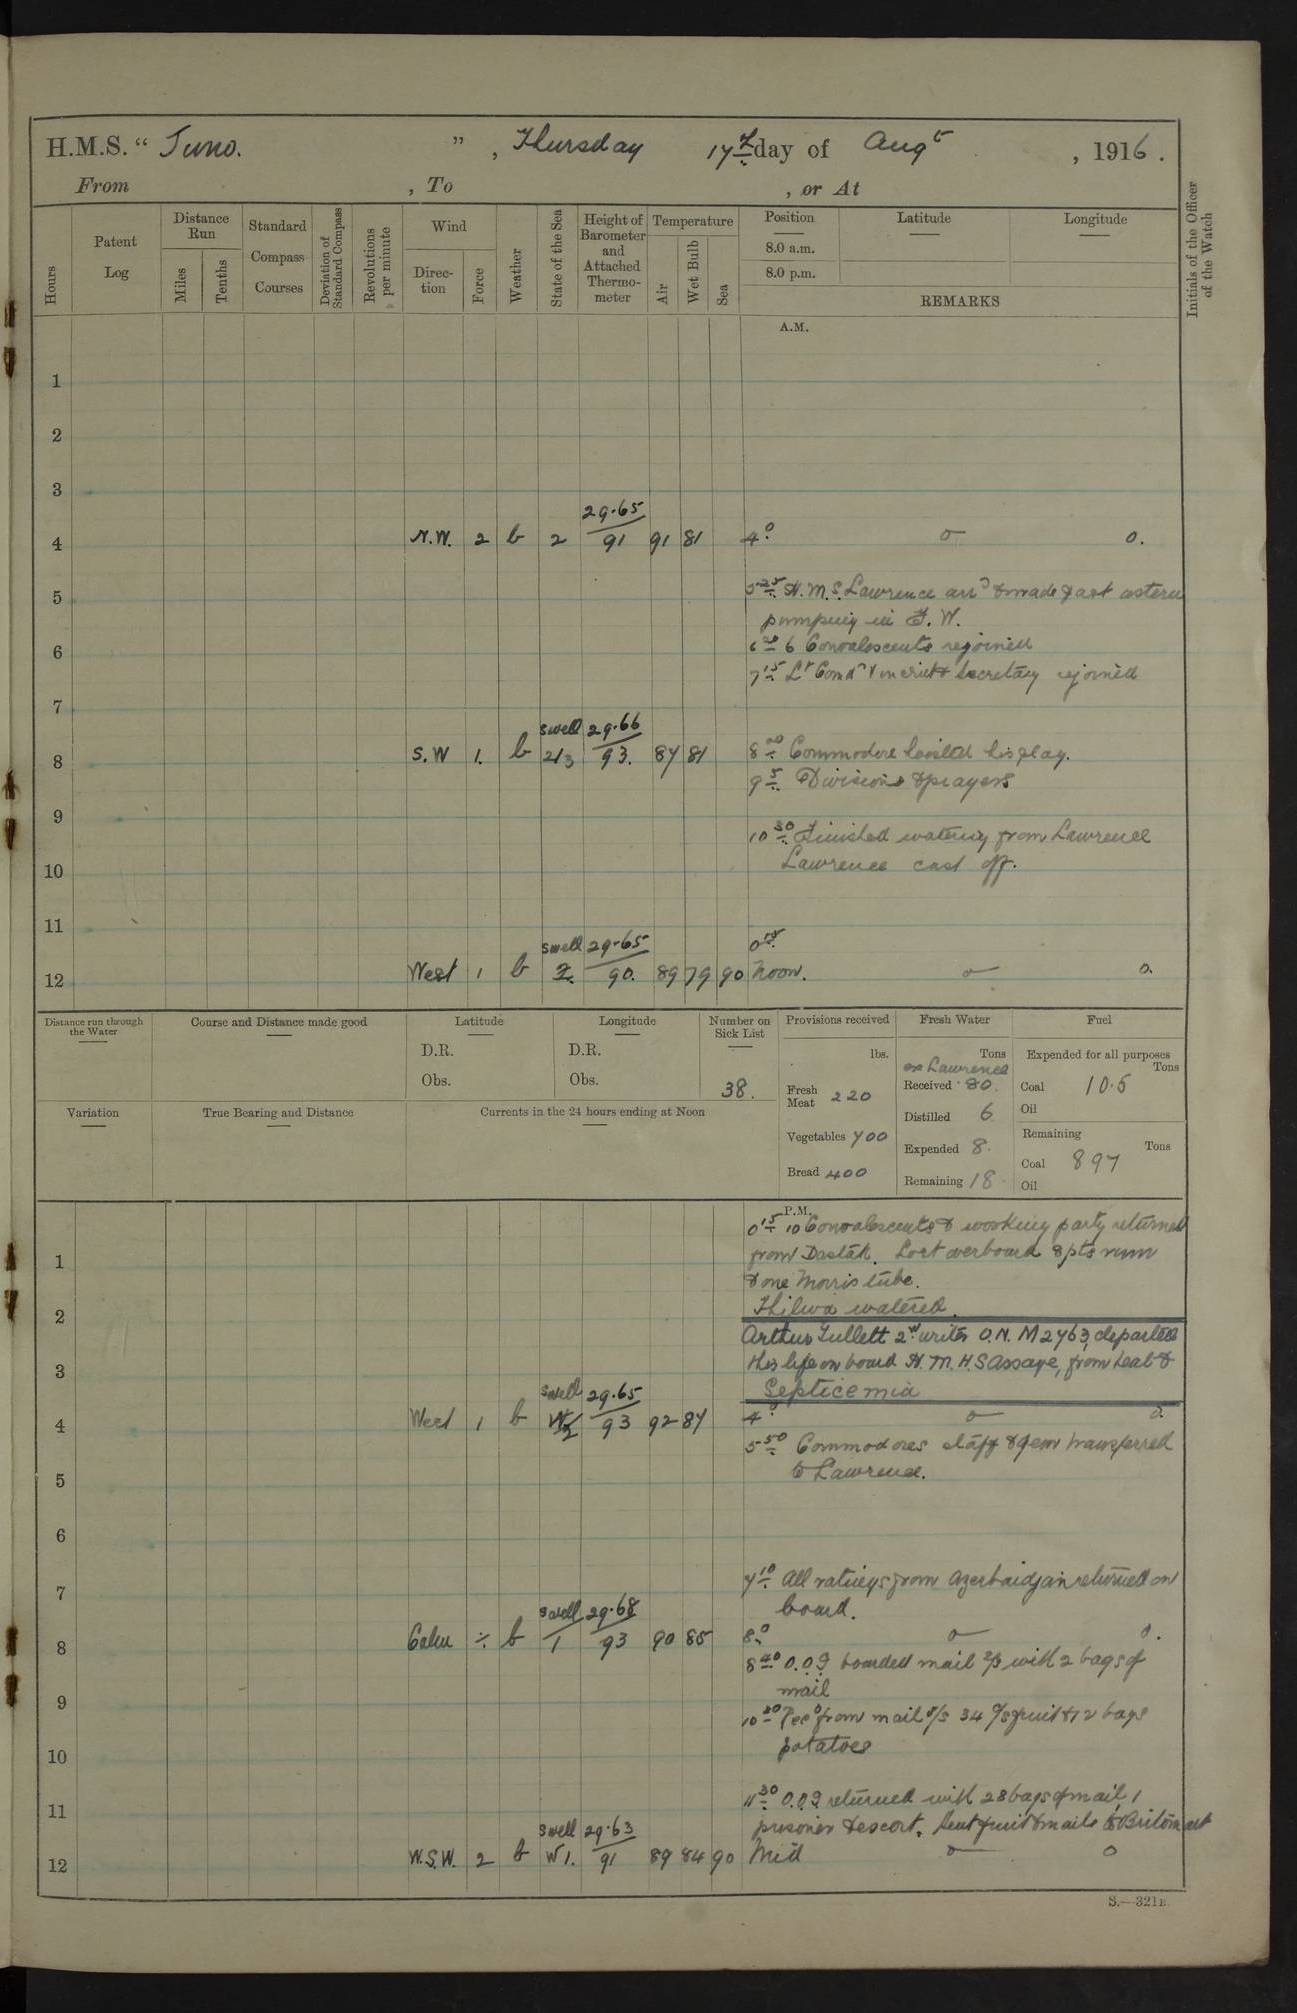 H.M.S. “ Juno. ” , Thursday 17th day of Augt , 1916.
From , To , or At
Hours
Patent Log
Distance Run
Miles
Tenths
Standard Compass Courses
Deviation of Standard Compass
Revolutions per minute
Wind
Direction
Force
Weather
State of the Sea
Height of Barometer and Attached Thermometer
Temperature
Air
Wet Bulb
Sea
Position
8.0 a.m.
8.0 p.m.
Latitude
Longitude
REMARKS
Initials of the Officer of the Watch
A.M.
1
2
3
4 N.W. 2 b 2 29.65/91 91 81 4.0 o o.
5 5.25 H.M.S. Lawrence arrd & made fast astern
pumping in F.W.
6 6 Convalescents rejoined
7.15 Lt Comdr & Secretary rejoined
7
8 S.W 1. b swell 2/3 29.66/93. 87 81 8.00 Commodore hoisted his flag.
9.5 Divisions & prayers
9
10.30 Finished watering from Lawrence
10 Lawrence cast off.
11
12 West 1 b swell 2. 29.65/90. 89 79 90 Noon. o o.
Distance run through the Water
Course and Distance made good
Latitude
D.R.
Obs.
Longitude
D.R.
Obs.
Number on Sick List
38.
Provisions received
lbs.
Fresh Meat 220
Vegetables 700
Bread 400
Fresh Water
Tons
ex Lawrence
Received 80.
Distilled 6
Expended 8.
Remaining 18.
Fuel
Expended for all purposes
Tons
Coal 10.5
Oil
Remaining
Tons
Coal 897
Oil
Variation
True Bearing and Distance
Currents in the 24 hours ending at Noon
P.M.
0.15 10 Convalescents & working party returned
1 from Dastak. Lost overboard 8 pts rum
& one Morris tube.
Khilwa watered.
2
Arthur Tullett 2nd writer O.N. M2763, departed
3 this life on board H.M.H.S Assaye, from heat &
Septicemia
4 West 1 b swell 29.65/93 92 87 4.0 o o.
5.50 Commodores staff & gear transferred
5 to Lawrence.
6
7 7.10 All ratings from Azerbaidjain returned on
board.
8 Calm b swell 1 29.68/93 90 85 8.0 o o.
8.40 O.O.G boarded mail s/s with 2 bags of
mail
9
10.20 Recd from mail s/s 34 c/s fruit & 12 bags
potatoes
10
11 11.30 O.O.G returned with 28 bags of mail, 1
prisoner & escort. Sent fruit & mails to Britomart
12 W.S.W. 2 b swell W1. 29.63/91 89 84 90 Mid o o
S.—321B.